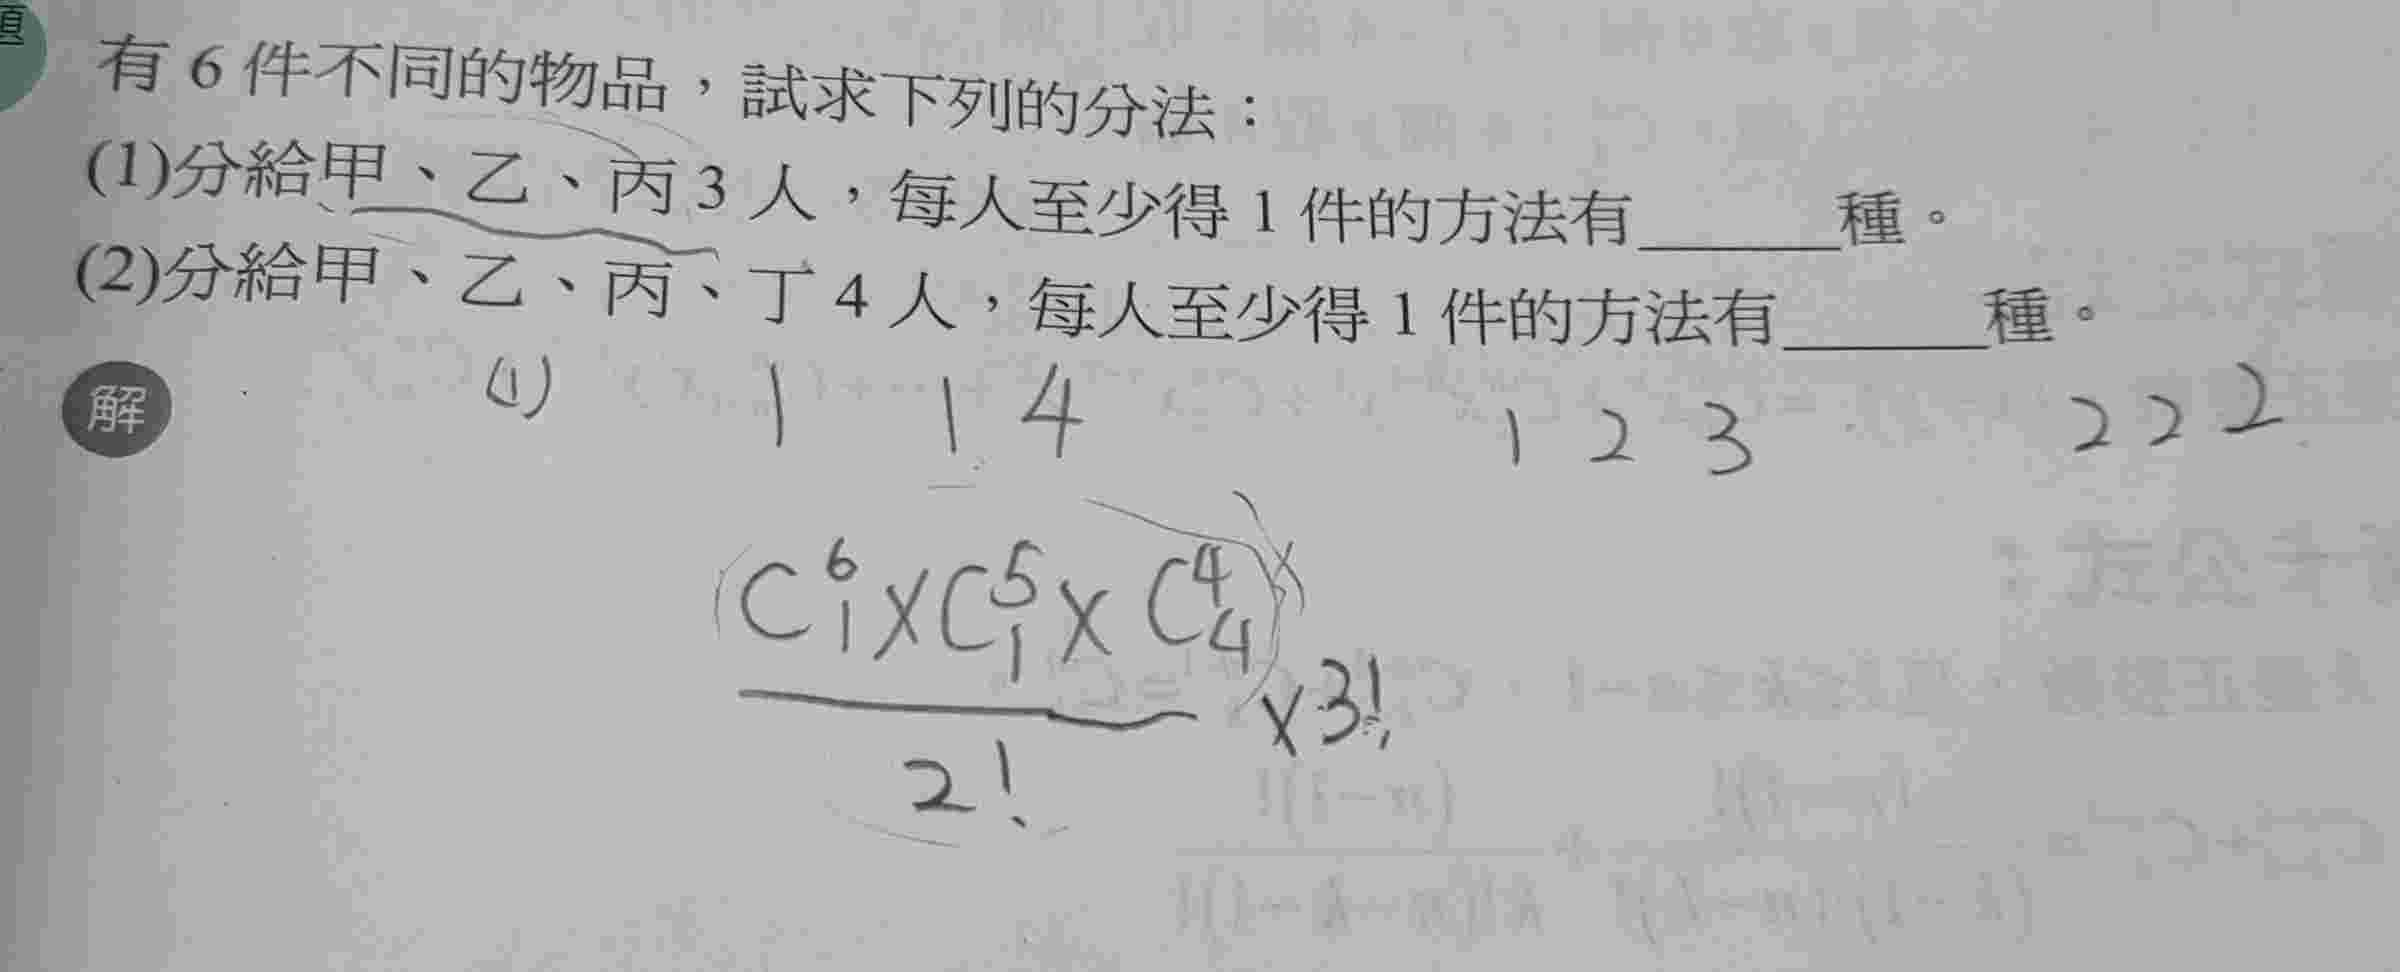 有 6 件不同的物品，試求下列的分法：
(1)分給甲、乙、丙 3 人，每人至少得 1 件的方法有______種。
(2)分給甲、乙、丙、丁 4 人，每人至少得 1 件的方法有______種。
解
(1) 1 1 4 1 2 3 2 2 2
C⁶₁×C⁵₁×C⁴₄
×3!
2!